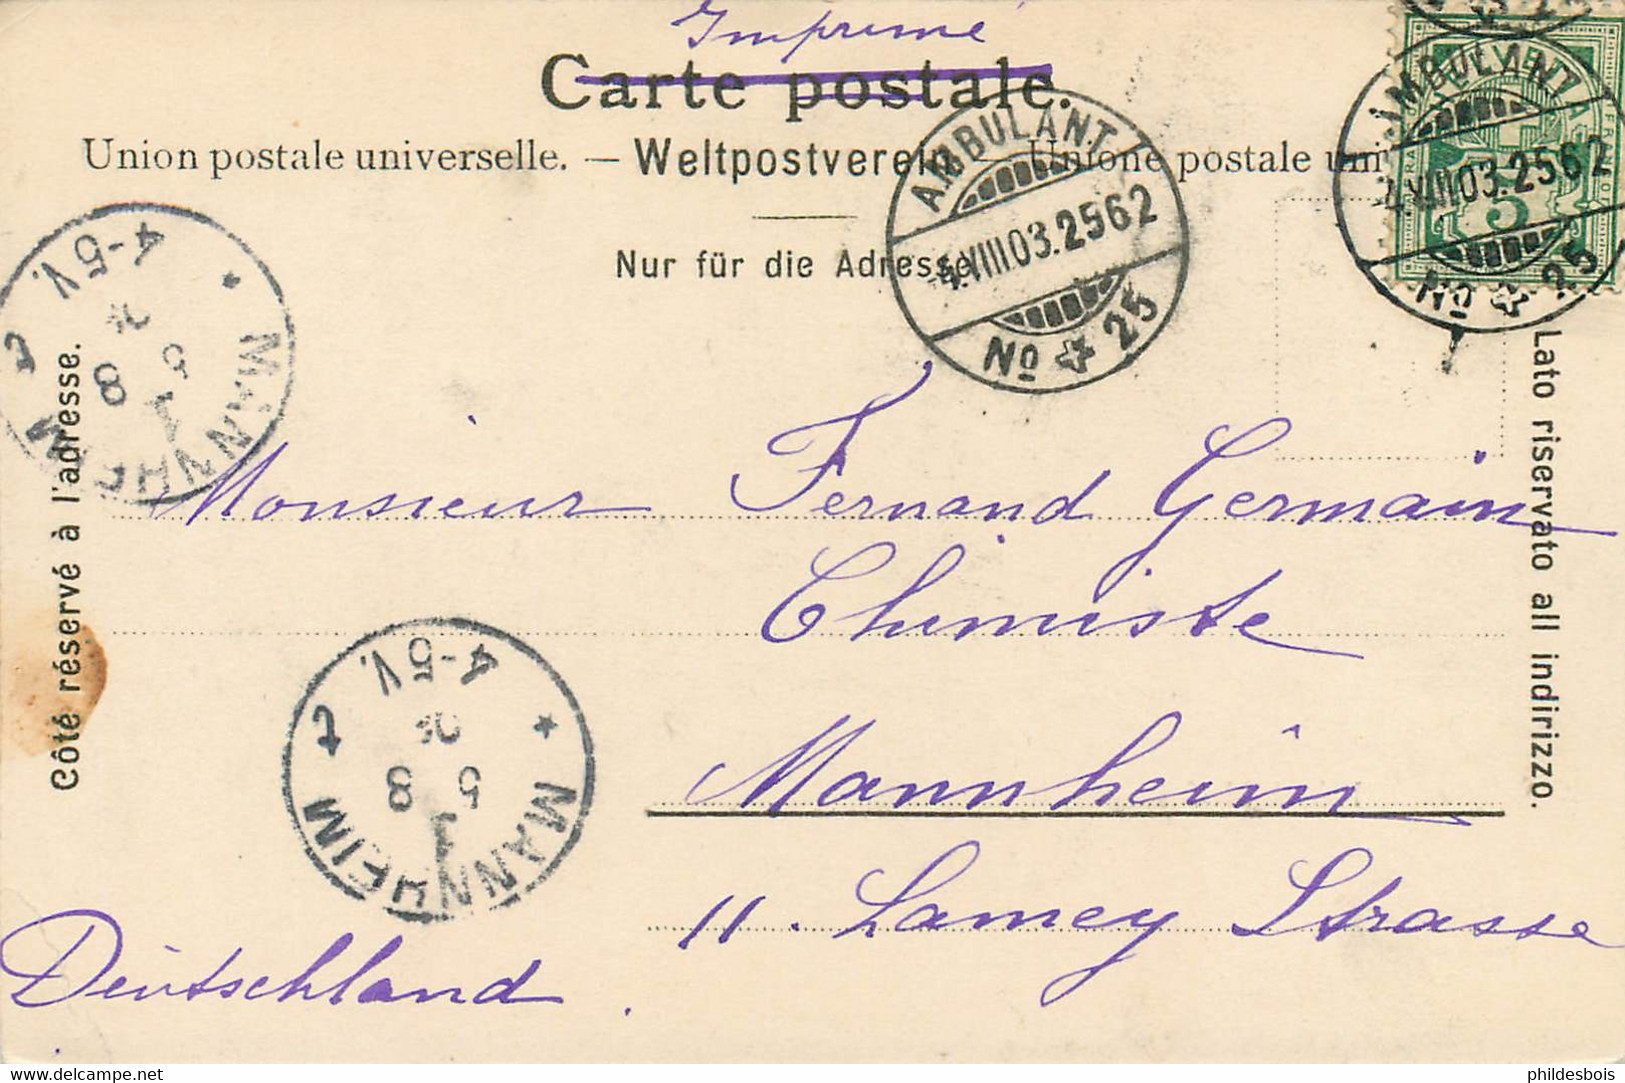 Imprimé
Carte postale.
Union postale universelle. — Weltpostverein — Unione postale uni
Nur für die Adresse
AMBULANT
4.VIII.03.2562
No 25
AMBULANT
4.VIII.03.2562
No 25
FRANCO
5
MANNHEIM
1
5 8
4-5V.
MANNHEIM
1
5 8
4-5V.
Côté réservé à l'adresse.
Lato riservato all indirizzo.
Monsieur Fernand Germain
Chimiste
Mannheim
11. Lamey Strasse
Deutschland.
www.delcampe.net
phildesbois